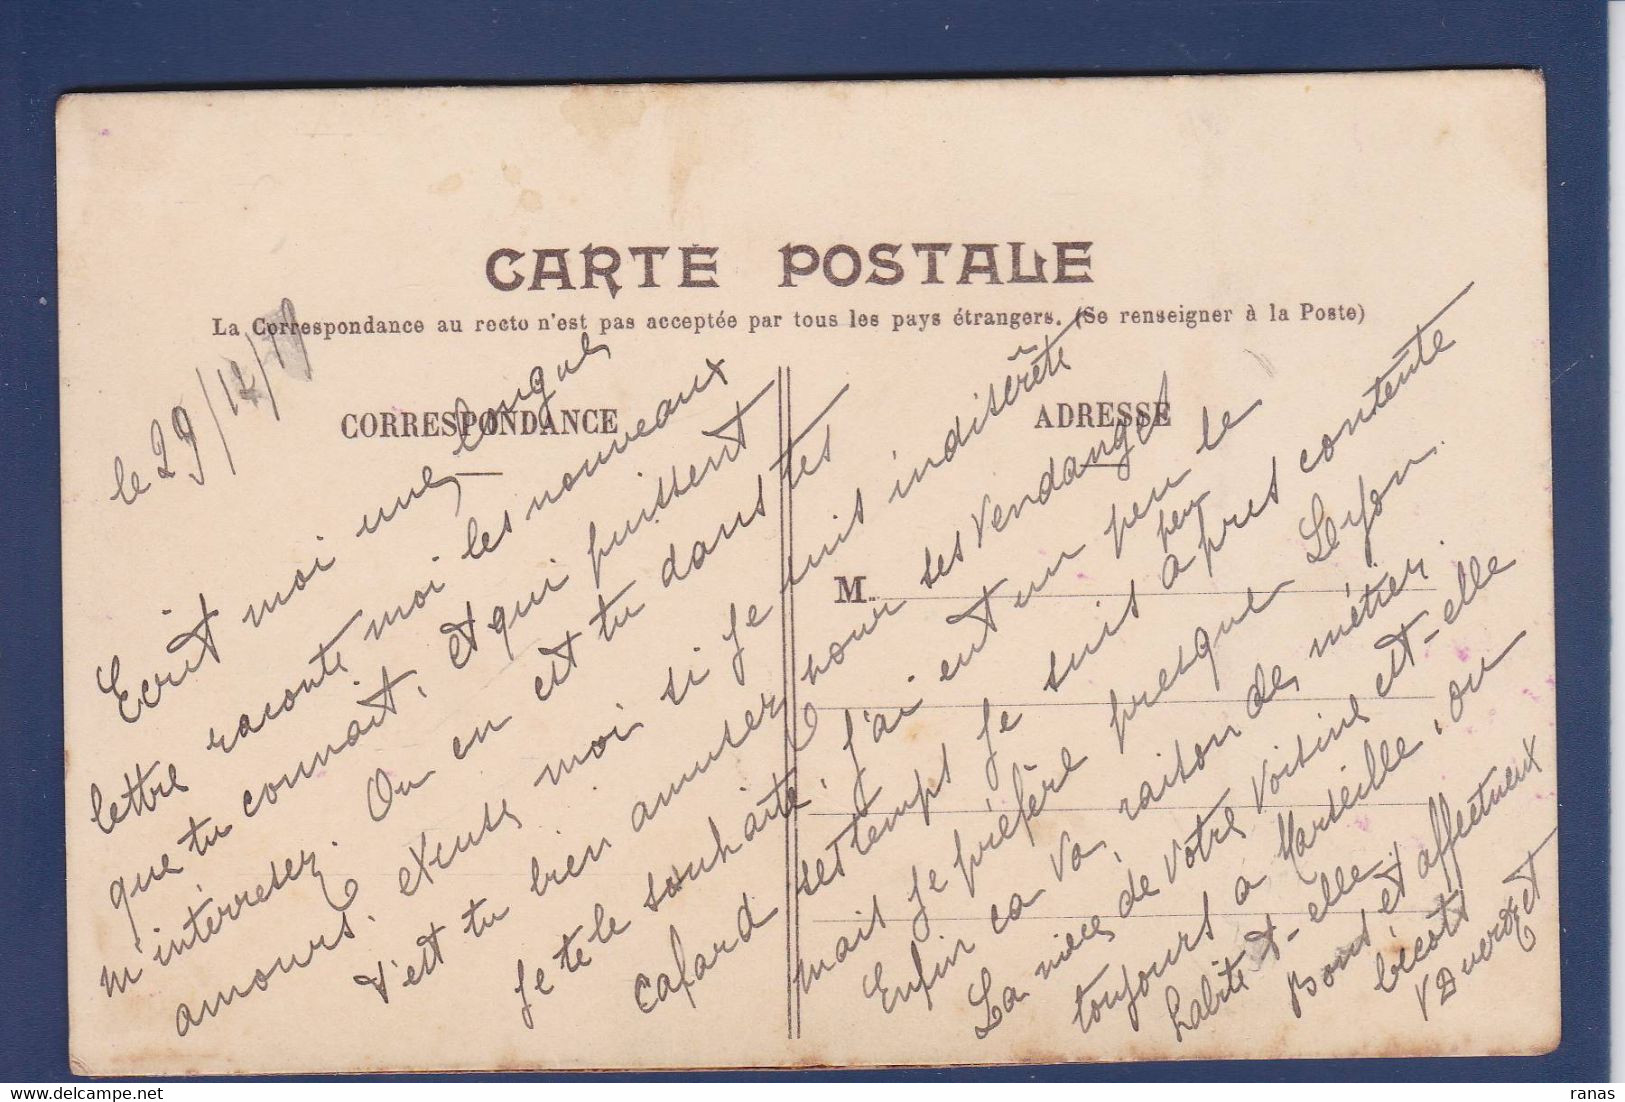 CARTE POSTALE
La Correspondance au recto n'est pas acceptée par tous les pays étrangers. (Se renseigner à la Poste)
CORRESPONDANCE
ADRESSE
M.
le 29/12/
Ecrit moi une longue
lettre raconte moi les nouveaux
que tu connait, et qui puissent
m'intérreser. Ou en est tu dans tes
amours. excuse moi si je suis indiscrête
t'est tu bien amuser pour ses vendanges
je te le souhaite, j'ai eut un peu le
cafard ses temps je suis a peu pres contente
mais je préfère presque Leyon.
Enfin ca va, raison de métier.
La nièce de votre voisine est-elle
toujours a Marseille, ou
habite t-elle.
Bons et affectueux
bécots